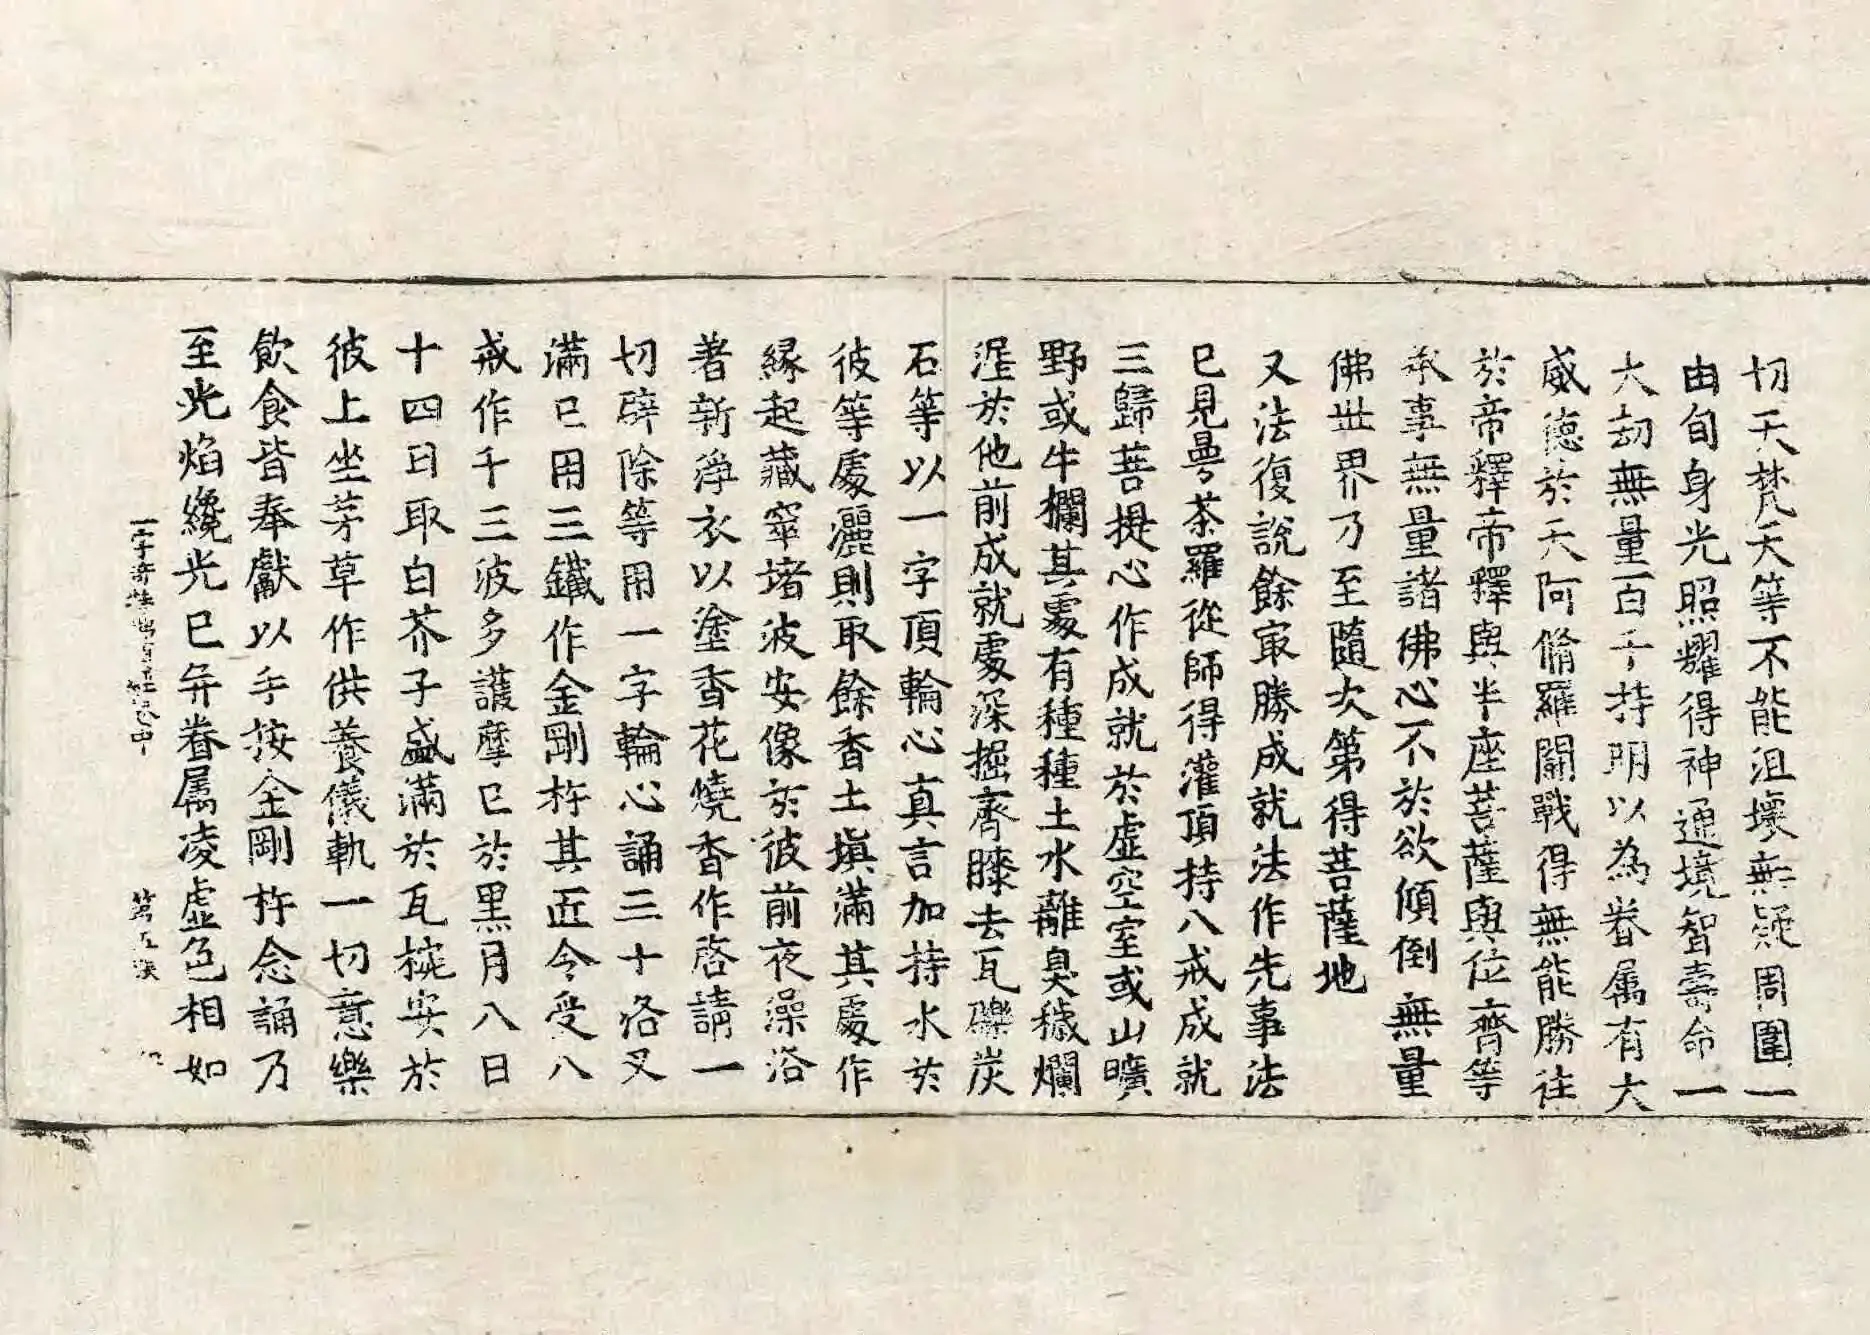 切天梵天等不能沮壞無疑周圍一
由旬身光照耀得神通境智壽命一
大劫無量百千持明以為眷属有大
威德於天阿脩羅鬪戰得無能勝往
於帝釋帝釋與半座菩薩與位齊等
承事無量諸佛心不於欲傾倒無量
佛世界乃至隨次第得菩薩地
又法復說餘冣勝成就法作先事法
已見曼荼羅從師得灌頂持八戒成就
三歸菩提心作成就於虛空室或山曠
野或牛欄其處有種種土水離臭穢爛
涅於他前成就處深掘齊膝去瓦礫炭
石等以一字頂輪心真言加持水於
彼等處灑則取餘香土塡滿其處作
緣起藏窣堵波安像於彼前夜澡浴
著新淨衣以塗香花燒香作啓請一
切辟除等用一字輪心誦三十洛叉
滿已用三鐵作金剛杵其匠令受八
戒作千三波多護摩已於黑月八日
十四日取白芥子盛滿於瓦椀安於
彼上坐茅草作供養儀軌一切意樂
飲食皆奉獻以手按金剛杵念誦乃
至光焰纔光已并眷属凌虛色相如
一字奇特佛頂經卷中 第五張